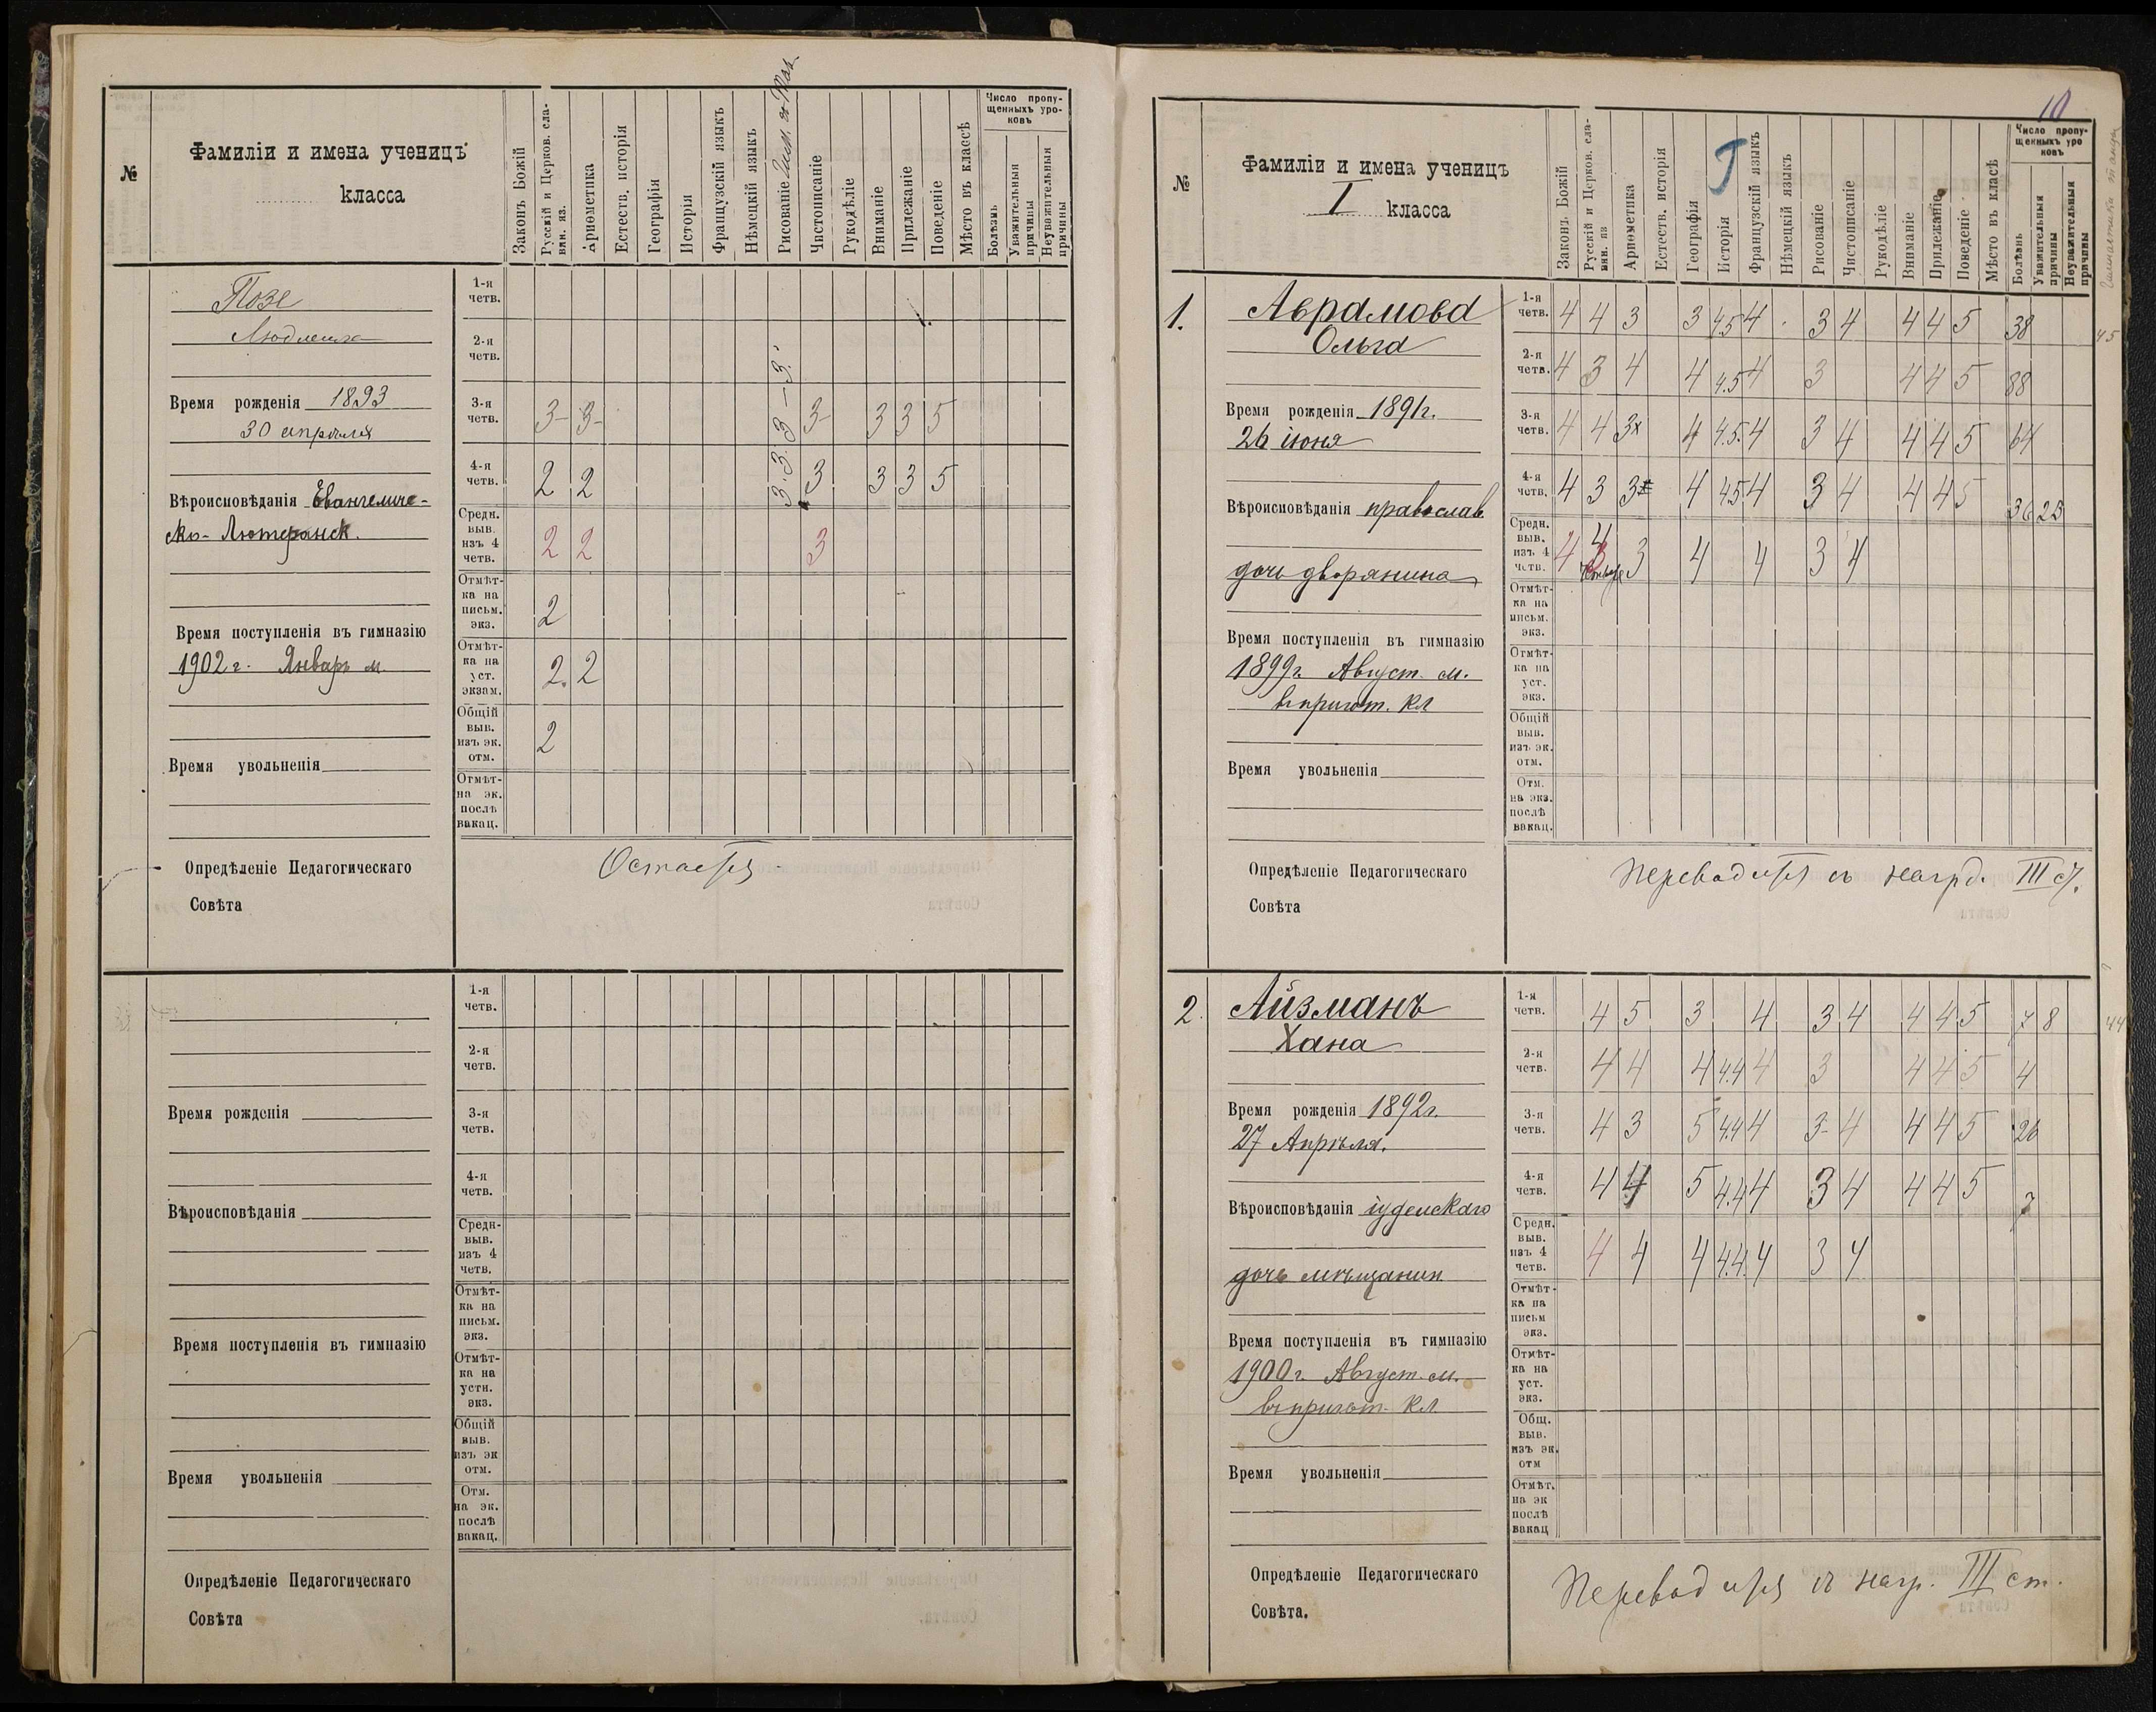 №
Фамиліи и имена ученицъ
класса
Законъ Божій
Русскій и Церков. сла-
вян. яз.
Ариѳметика
Естеств. исторія
Географія
Исторія
Французскій языкъ
Нѣмецкій языкъ
Рисованіе
Чистописаніе
Рукодѣліе
Вниманіе
Прилежаніе
Поведеніе
Мѣсто въ классѣ
Число пропу-
щенныхъ уро-
ковъ
Болѣзнь
Уважительныя
причины
Неуважительныя
причины
Позе
Людмила
Время рожденія 1893
30 апрѣля
Вѣроисповѣданія Евангеличе-
ско-Лютеранск.
Время поступленія въ гимназію
1902 г. Январь м.
Время увольненія
1-я
четв.
2-я
четв.
3-я
четв. 3- 3- 3 - 3. 3- 3 3 5
4-я
четв. 2 2 3. 3. 3 3 3 5
Средн.
выв.
изъ 4
четв. 2 2 3
Отмѣт-
ка на
письм.
экз. 2
Отмѣт-
ка на
уст.
экзам. 2. 2
Общій
выв.
изъ эк.
отм. 2
Отмѣт-
на эк.
послѣ
вакац.
Опредѣленіе Педагогическаго
Совѣта
Остается
1-я
четв.
2-я
четв.
Время рожденія
3-я
четв.
4-я
четв.
Вѣроисповѣданія
Средн-
выв.
изъ 4
четв.
Отмѣт-
ка на
письм.
экз.
Время поступленія въ гимназію
Отмѣт-
ка на
устн.
экз.
Общій
выв.
изъ эк
отм.
Время увольненія
Отм.
на эк.
послѣ
вакац.
Опредѣленіе Педагогическаго
Совѣта
10
№
Фамиліи и имена ученицъ
I класса
Законъ Божій
Русскій и Церков. сла-
вян. яз
Ариѳметика
Естеств. исторія
Географія
Исторія
Французскій языкъ
Нѣмецкій языкъ
Рисованіе
Чистописаніе
Рукодѣліе
Вниманіе
Прилежаніе
Поведеніе
Мѣсто въ класѣ
Число пропу-
щенныхъ уро
ковъ
Болѣзнь
Уважительныя
причины
Неуважительныя
причины
1.
Аврамова
Ольга
Время рожденія 1891г.
26 іюня
Вѣроисповѣданія православ.
дочь дворянина
Время поступленія въ гимназію
1899г. Август. м.
въ пригот. кл
Время увольненія
1-я
четв. 4 4 3 3 4.5 4 3 4 4 4 5 38 45
2-я
четв. 4 3 4 4 4.5 4 3 4 4 5 88
3-я
четв. 4 4 3х 4 4.5. 4 3 4 4 4 5 64
4-я
четв. 4 3 3 4 4.5 4 3 4 4 4 5 36 23
Средн.
выв.
изъ 4
четв. 4 4 3 3 4 4 3 4
Отмѣт-
ка на
письм.
экз.
Отмѣт-
ка на
уст.
экз.
Общій
выв.
изъ эк.
отм.
Отм.
на экз.
послѣ
вакац.
Опредѣленіе Педагогическаго
Совѣта
Переводится съ нагрд. III ст.
2.
Айзманъ
Хана
Время рожденія 1892г.
27 Апрѣля.
Вѣроисповѣданія іудейскаго
дочь мѣщанин
Время поступленія въ гимназію
1900г. Август. м.
въ пригот. кл
Время увольненія
1-я
четв. 4 5 3 4 3 4 4 4 5 7 8 44
2-я
четв. 4 4 4 4.4 4 3 4 4 5 4
3-я
четв. 4 3 5 4.4 4 3- 4 4 4 5 26
4-я
четв. 4 4 5 4.4 4 3 4 4 4 5 7
Средн.
выв.
изъ 4
четв. 4 4 4 4.4. 4 3 4
Отмѣт-
ка на
письм
экз.
Отмѣт-
ка на
уст.
экз.
Общ.
выв.
изъ эк.
отм
Отмѣт.
на эк
послѣ
вакац
Опредѣленіе Педагогическаго
Совѣта.
Переводится съ нагр. III ст.